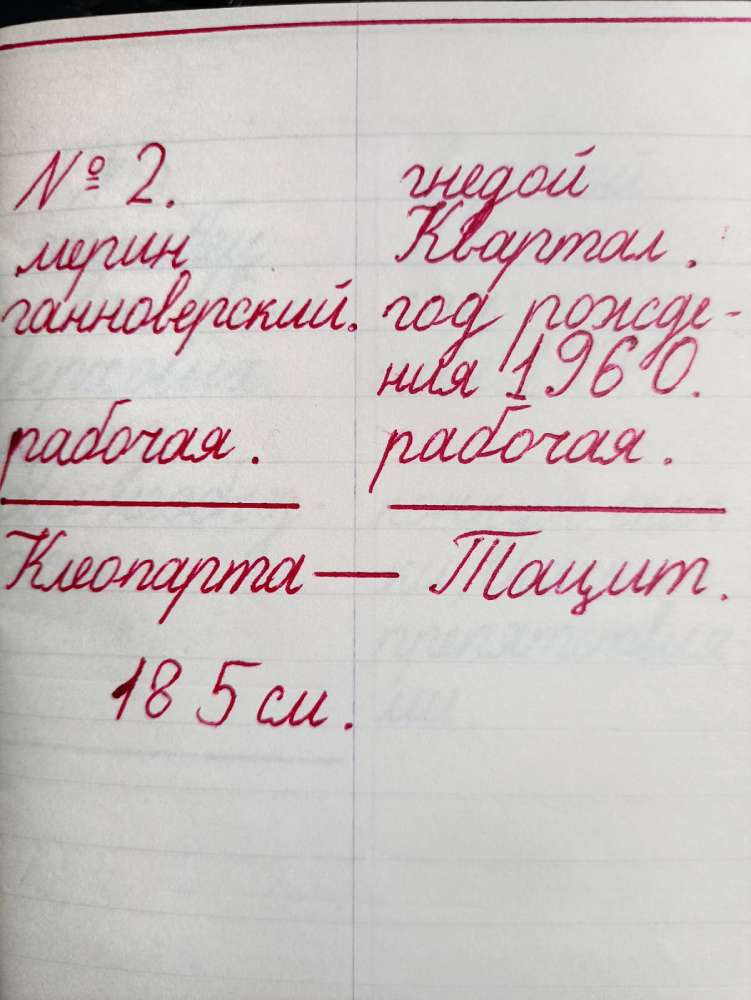 № 2. гнедой
мерин Квартал.
ганноверский. год рожде-
ния 1960.
рабочая. рабочая.
Клеопарта — Тацит.
185 см.